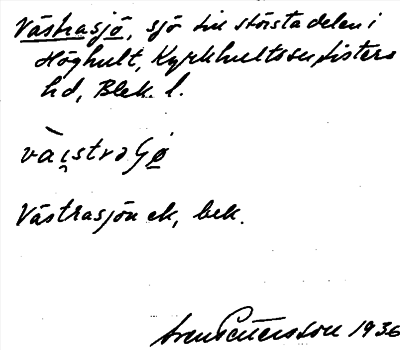 Västrasjö, sjö till största delen i
Höghult, Kyrkhults sn, Listers
hd, Blek. l.
Västrasjön ek, bek.
Sven Pettersson 1936